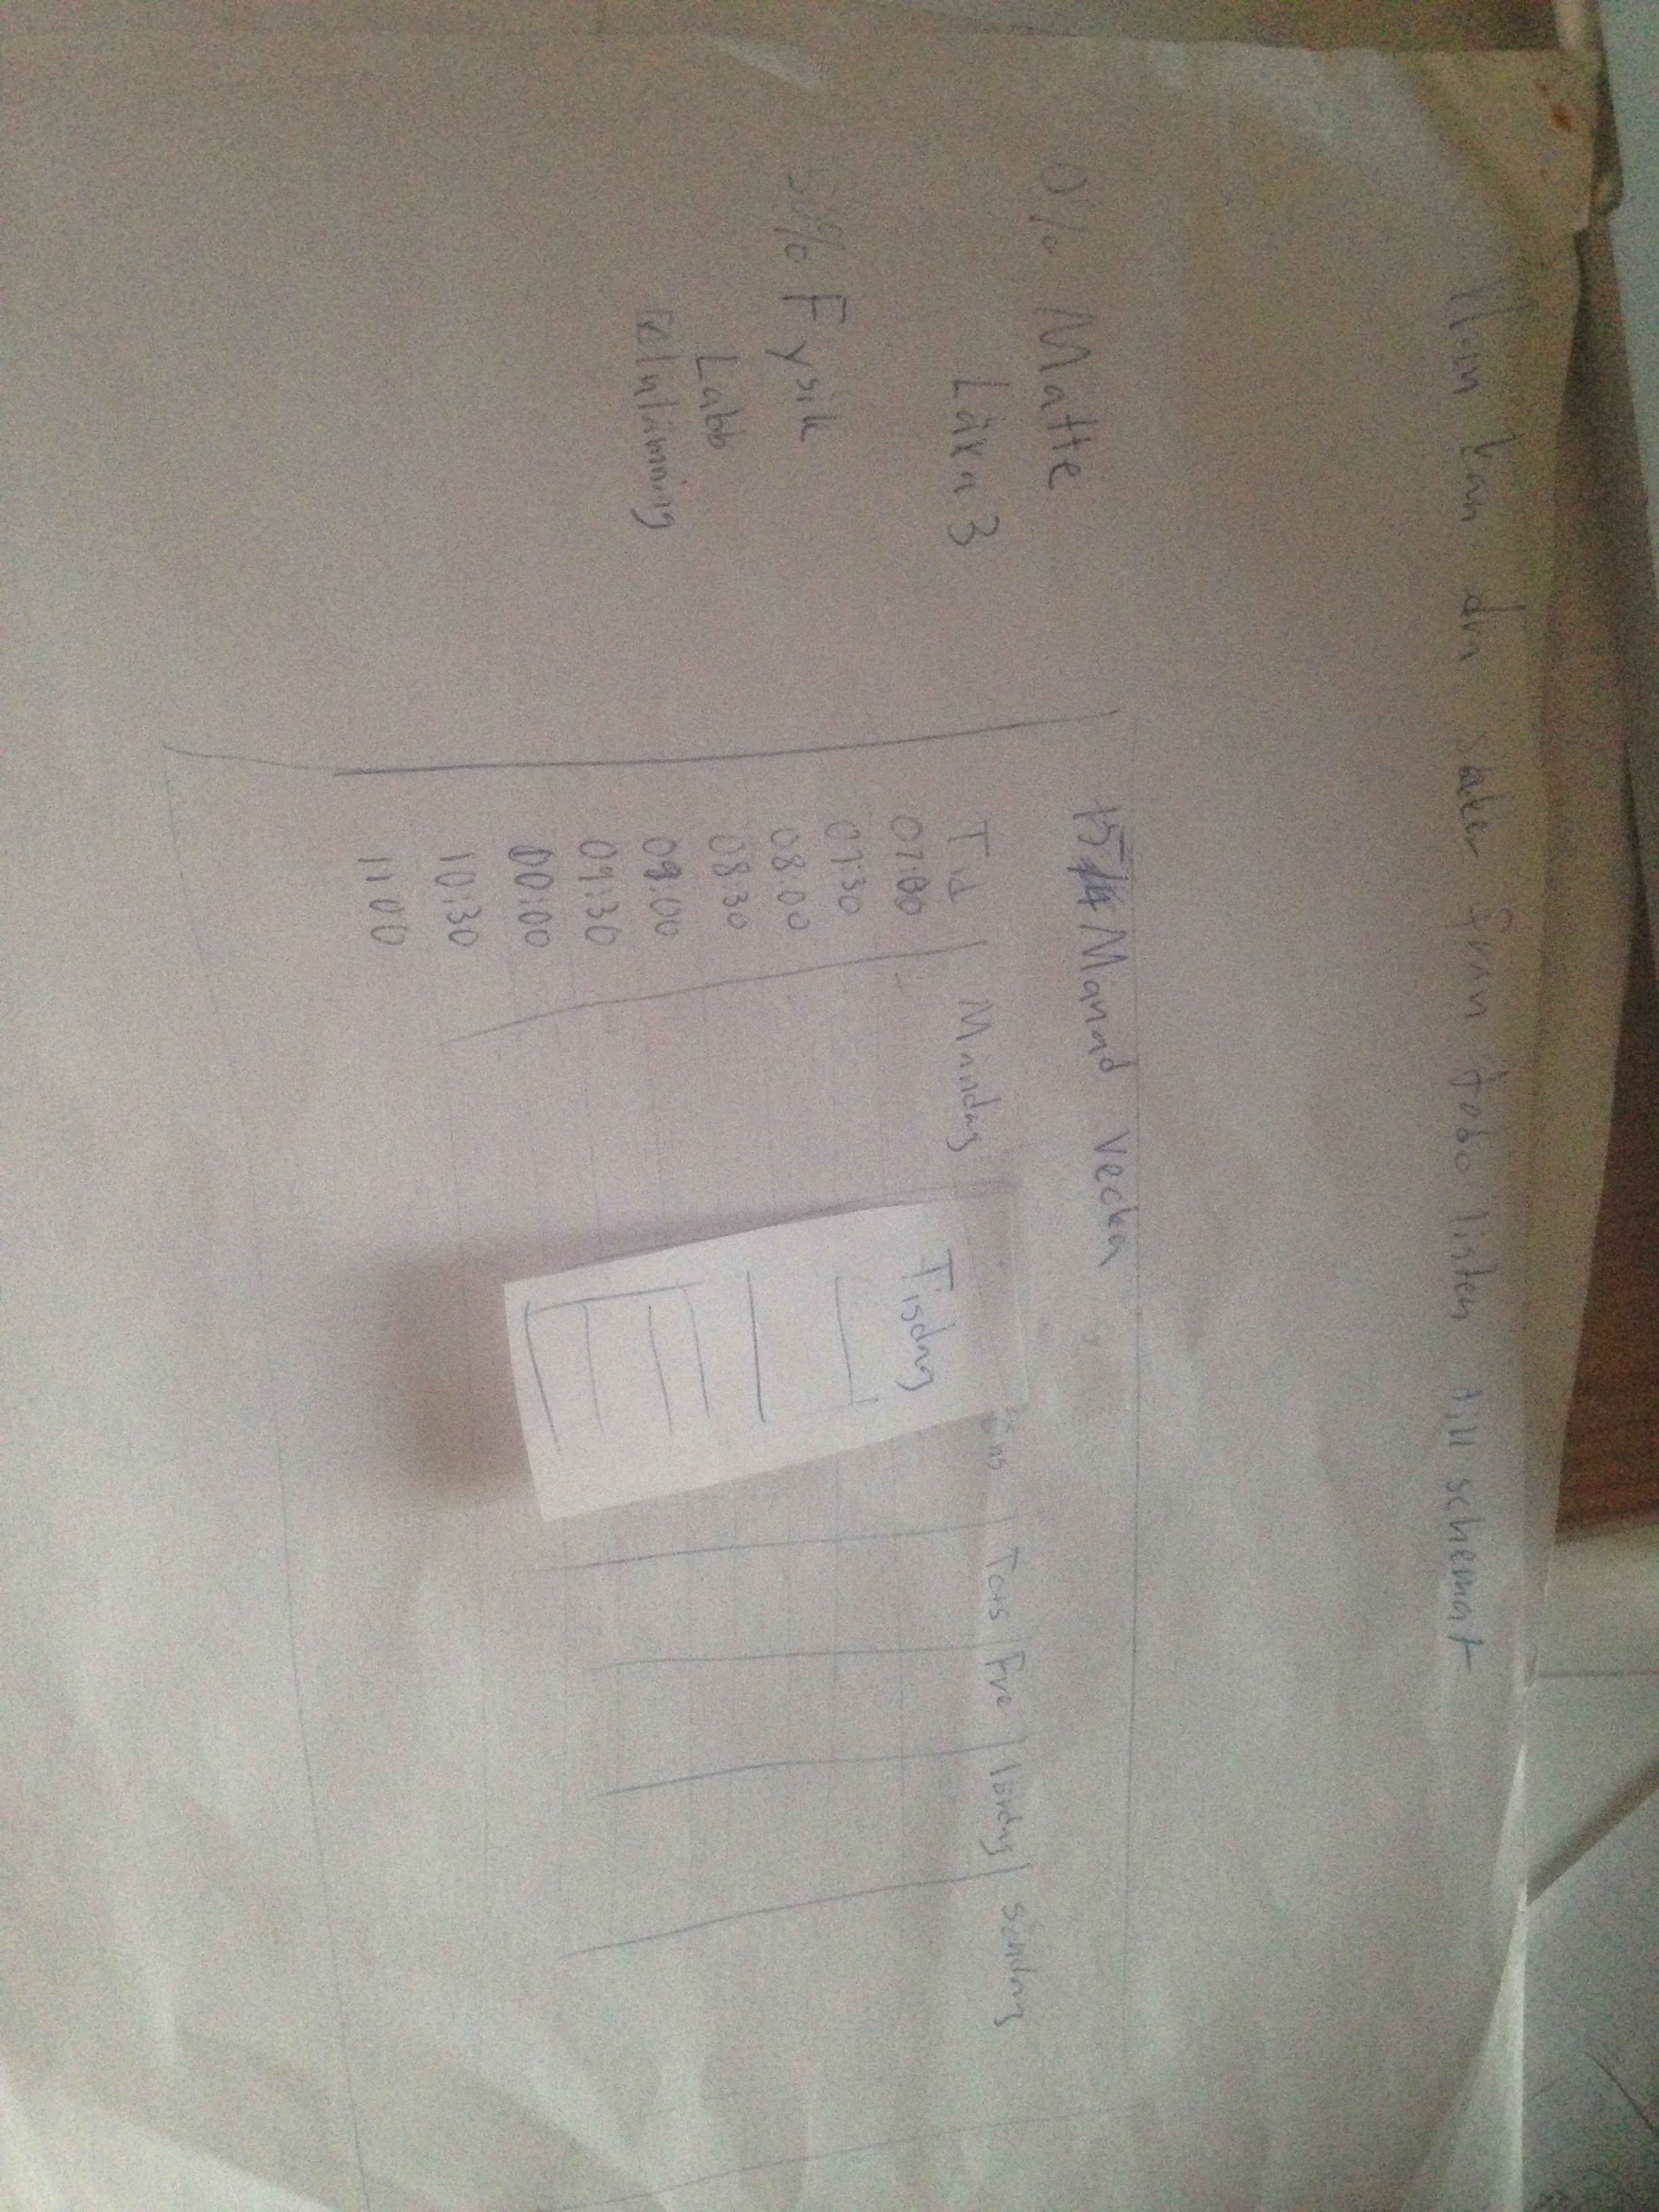 Man kan dra saker från todo listen till schemat
0% Matte
Läxa 3
50% Fysik
Labb
Inlämning
Månad Vecka
Tid Måndag Tisdag ns Tors Fre lördag söndag
07:00
07:30
08:00
08:30
09:00
09:30
00:00
10:30
11:00